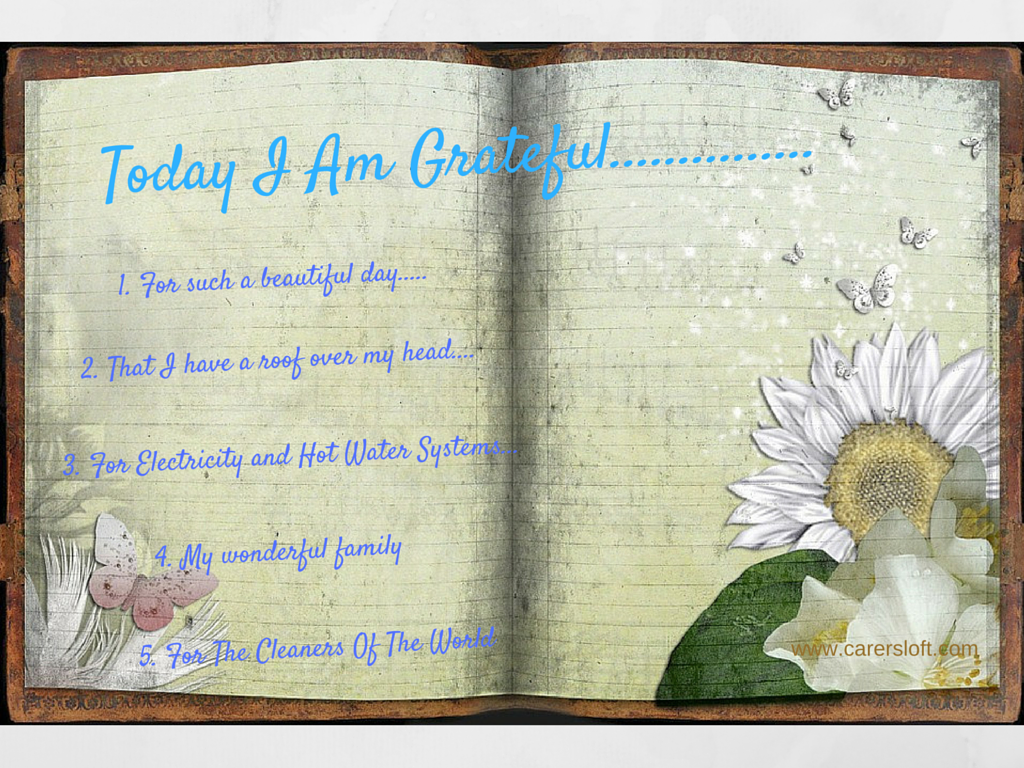 Today I Am Grateful...............
1. For such a beautiful day.....
2. That I have a roof over my head....
3. For Electricity and Hot Water Systems...
4. My wonderful family
5. For The Cleaners Of The World
www.carersloft.com